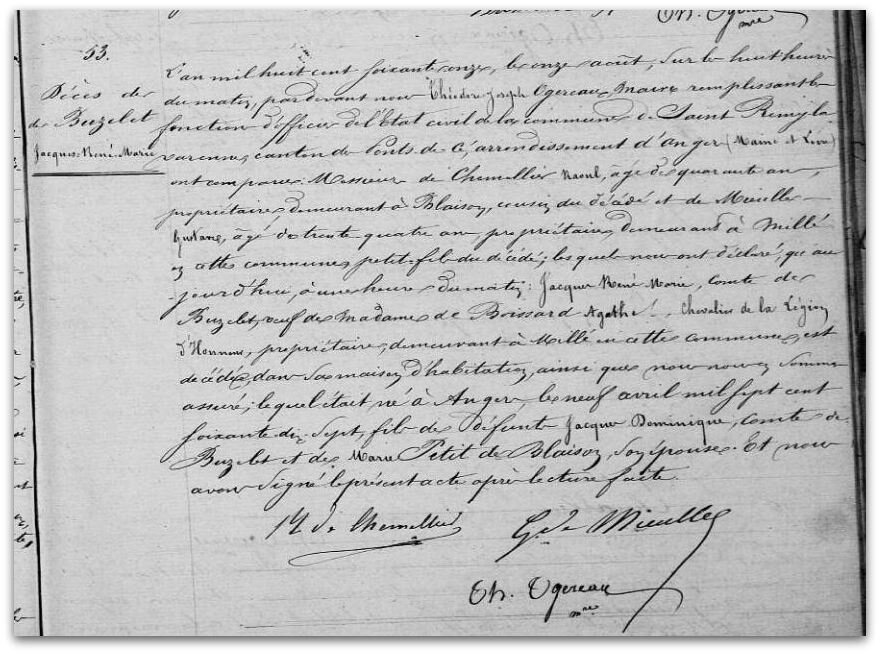 Th. Ogereau
mre
53.
Décès de
de Buzelet
Jacques René Marie
L'an mil huit cent soixante onze, le onze août, sur les huit heures
du matin, par devant nous Théodore Joseph Ogereau, Maire remplissant les
fonctions d'officier de l'Etat civil de la commune de Saint Remy la
varenne, canton des Ponts de Cé, arrondissement d'Angers (Maine et Loire)
ont comparu: Messieurs de Chemellier Raoul, âgé de quarante ans,
propriétaire demeurant à Blaison, cousin du décédé et de Mieulle
Gustave, âgé de trente quatre ans, propriétaire demeurant à Millé
en cette commune petit-fils du décédé; lesquels nous ont déclaré, qu'au
jourd'hui, à une heure du matin: Jacques René Marie, comte de
Buzelet, veuf de Madame de Boissard Agathe, Chevalier de la Légion
d'Honneur, propriétaire, demeurant à Millé en cette commune, est
décédé, dans sa maison d'habitation, ainsi que nous nous en sommes
assuré; lequel était né à Angers, le neuf avril mil sept cent
soixante dix sept, fils de défunts Jacques Dominique, comte de
Buzelet et de Marie Petit de Blaison, son épouse. Et nous
avons signé le présent acte après lecture faite.
R de Chemellier
G. de Mieulle
Th. Ogereau
mre